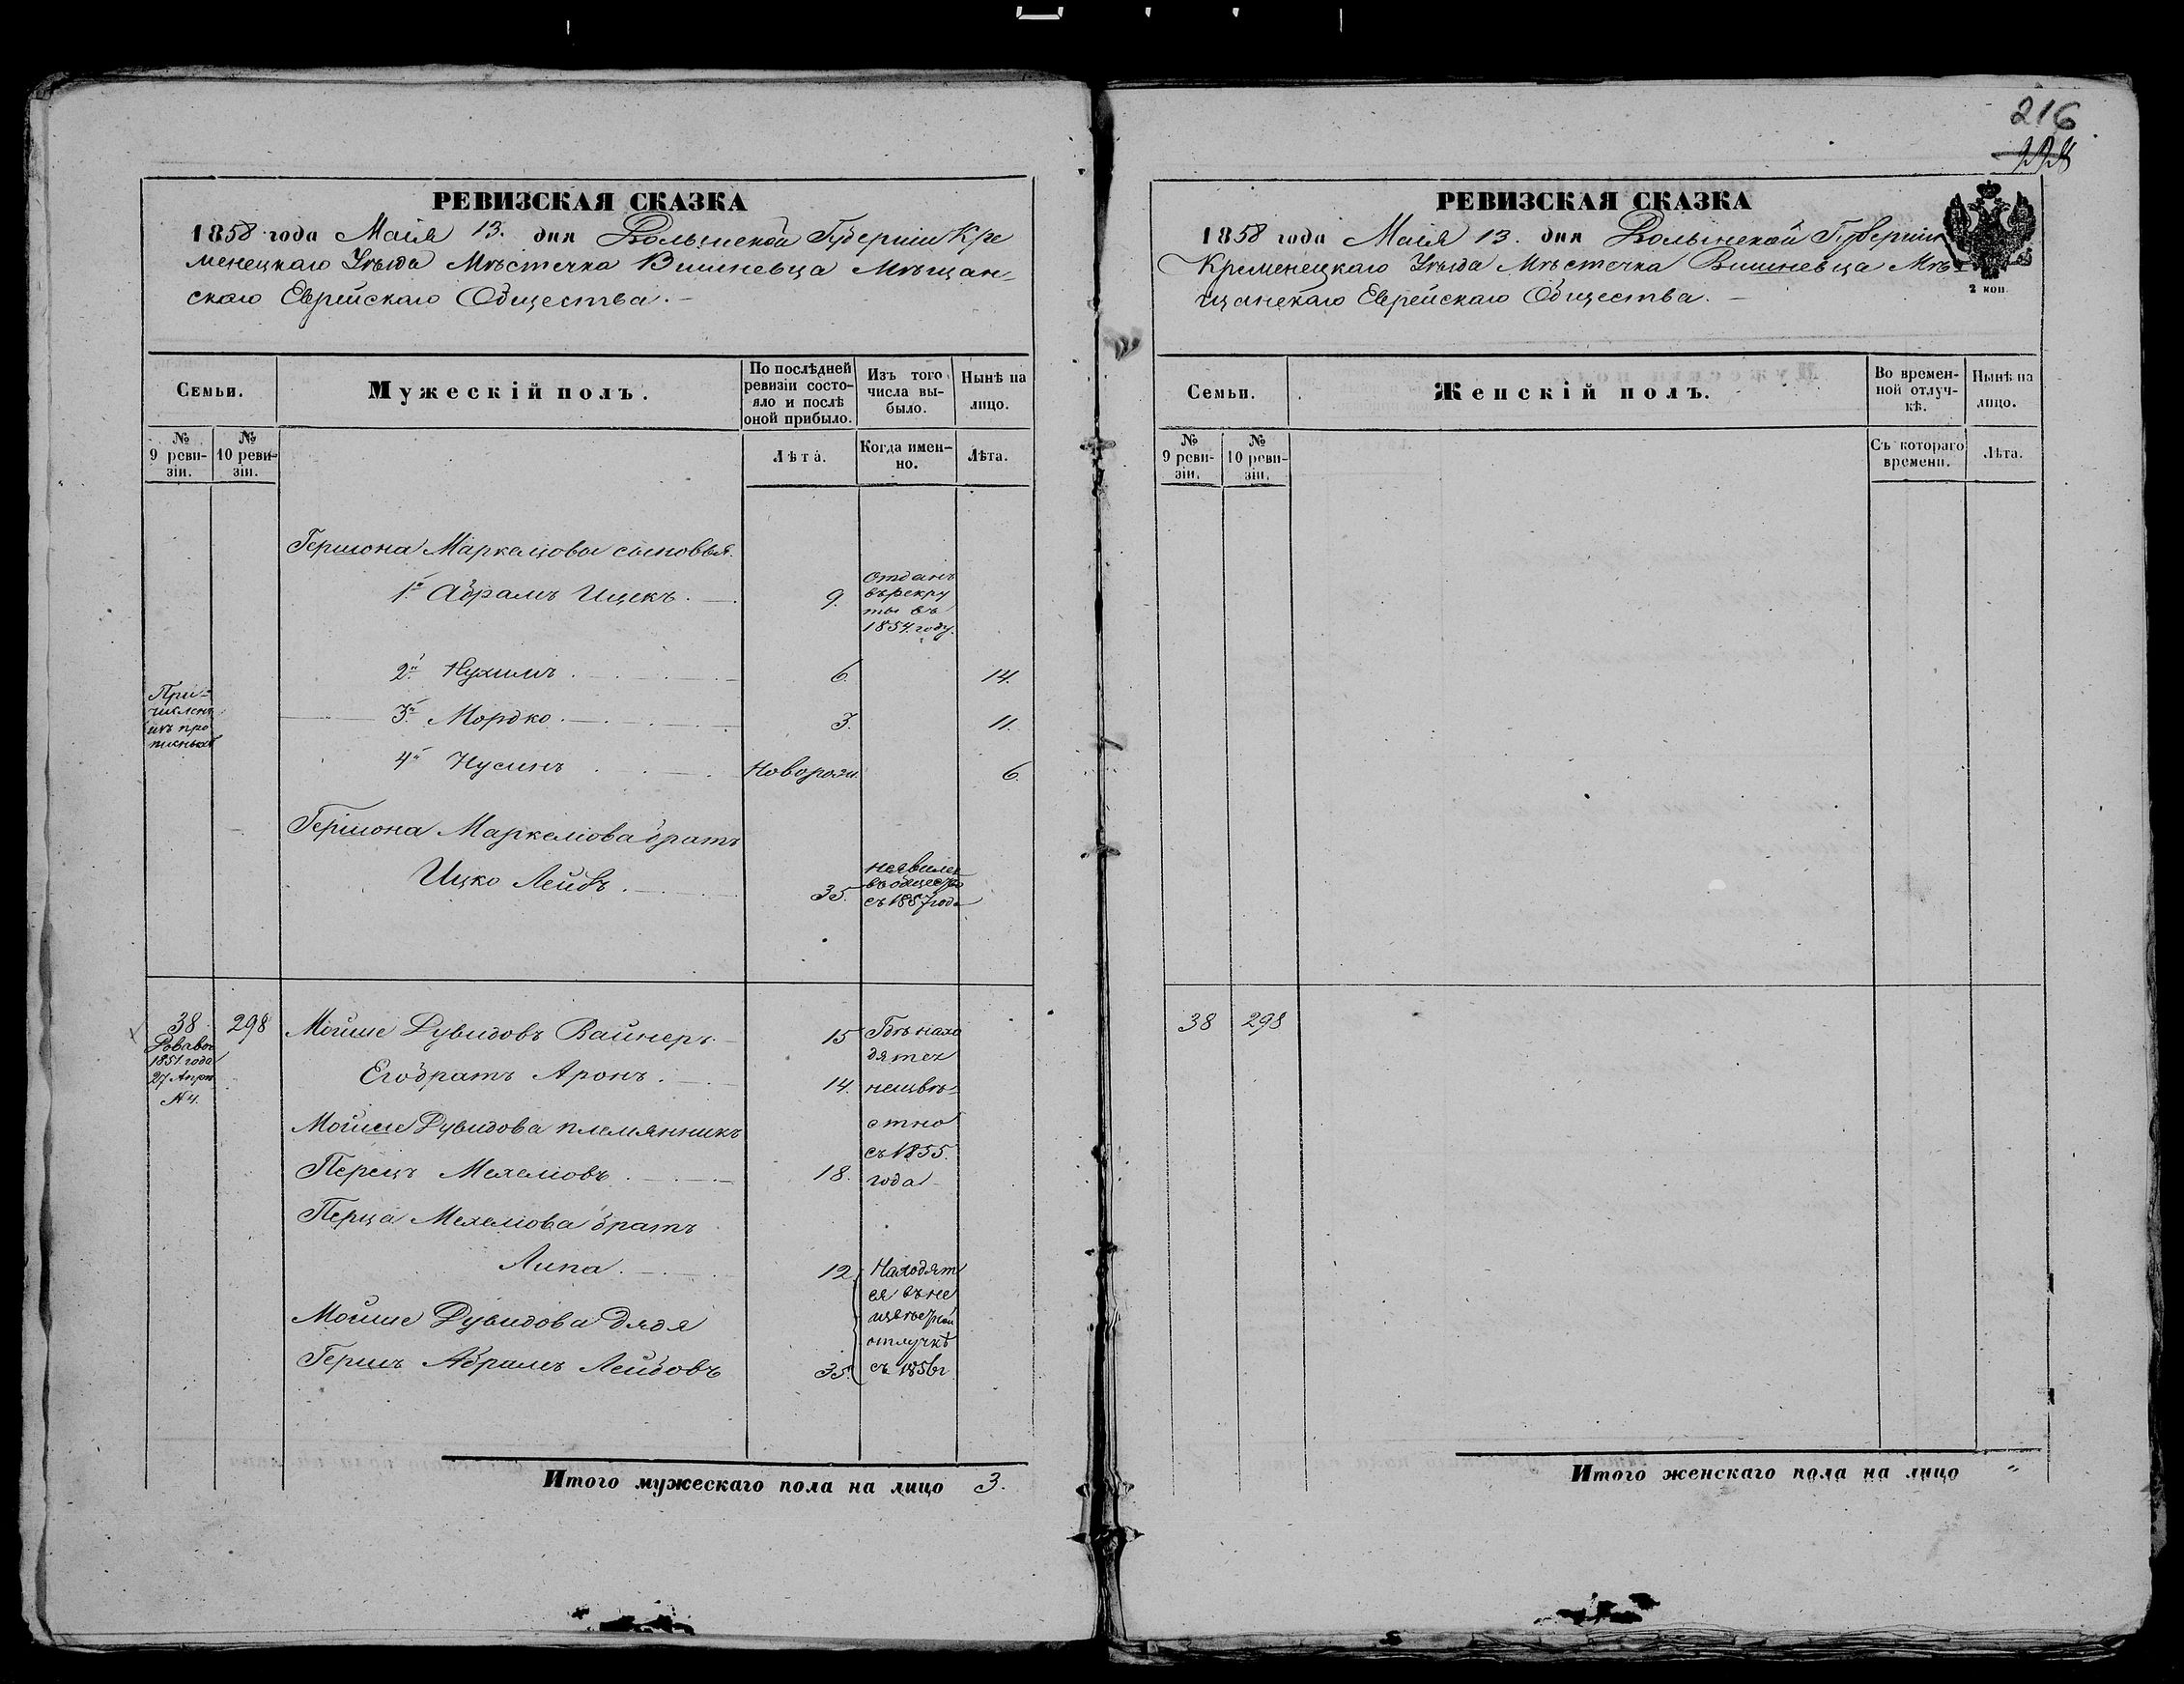 РЕВИЗСКАЯ СКАЗКА
1858 года Маія 13. дня Волынской Губерніи Кре
менецкаго Уѣзда Мѣстечка Вишневца Мѣщан-
скаго Еврейскаго Общества.
Семьи.
Мужескій полъ.
По послѣдней ревизіи состо-
яло и послѣ оной прибыло.
Изъ того числа вы-
было.
Нынѣ на лицо.
№ 9 реви-
зіи.
№ 10 реви-
зіи.
Лѣта.
Когда имен-
но.
Лѣта.
Гершона Маркелиова сыновья.
1й Абрамъ Ицекъ. 9. Отданъ
въ рекру
ты въ
1854. году.
2й Нухимъ. 6. 14.
При-
численъ
изъ про
писныхъ
3й Мордко. 3. 11.
4й Нусинъ. Новорож. 6.
Гершона Маркелиова братъ
Ицко Лейбъ. 35. неявился
въ общество
съ 1857 года
38. 298 Мойше Дувидовъ Вайнеръ 15 Гдѣ нахо
1851 года
27 Апрѣ
№ 4.
дятся
Его братъ Аронъ. 14. неизвѣ-
Мойше Дувидова племянникъ стно
съ 1855.
Перецъ Мехелиовъ. 18. года
Перца Мехелиова братъ
Липа. 12. Находят
ся въ не
извѣстной
Мойше Дувидова дядя
отлучкѣ
Гершъ Абрамъ Лейбовъ 35. съ 1856 г
Итого мужескаго пола на лицо 3.
216
РЕВИЗСКАЯ СКАЗКА
1858 года Маія 13. дня Волынской Губерніи
Кременецкаго Уѣзда Мѣстечка Вишневца Мѣ-
щанскаго Еврейскаго Общества.
2 коп.
Семьи.
Женскій полъ.
Во времен-
ной отлуч-
кѣ.
Нынѣ на лицо.
№ 9 реви-
зіи.
№ 10 реви-
зіи.
Съ котораго времени.
Лѣта.
38 298
Итого женскаго пола на лицо "